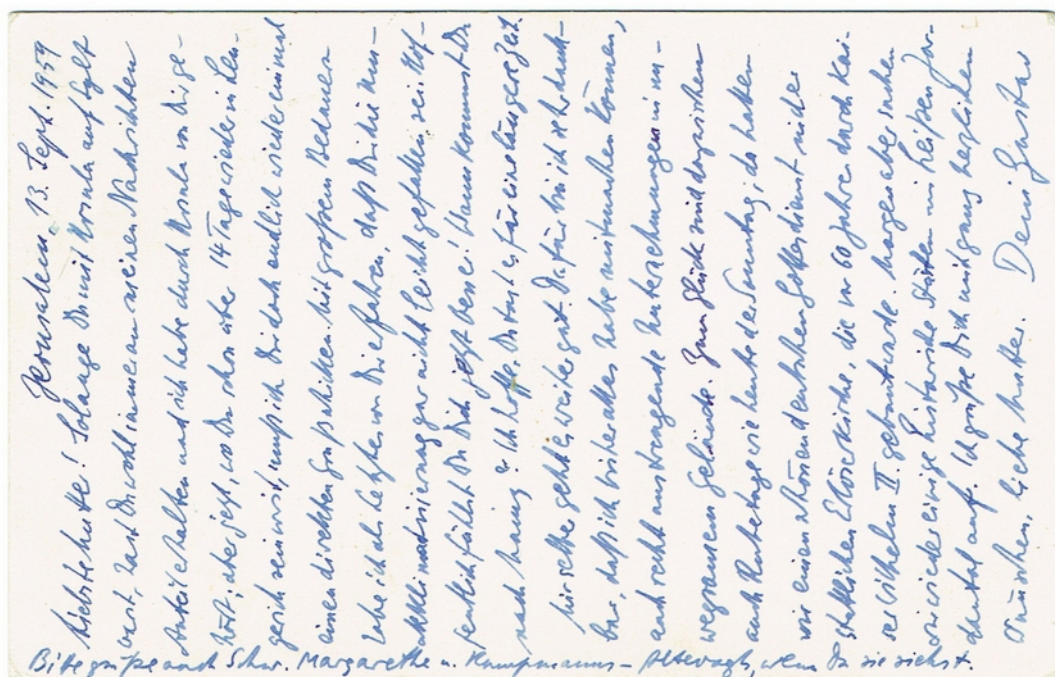 Jerusalem 13. Sept. 1959
Liebste Mutter! Solange Du mit Ursula auf Sylt
warst, hast Du wohl immer an meinen Nachrichten
Anteil erhalten und ich habe durch Ursula von Dir ge-
hört; aber jetzt, wo Du schon über 14 Tage wieder in Len-
gerich sein wirst, muß ich Dir doch endlich wieder einmal
einen direkten Gruß schicken. Mit großem Bedauern
habe ich als letztes von Dir erfahren, daß Dir die Um-
akklimatisierung gar nicht leicht gefallen sei. Hof-
fentlich fühlst Du Dich jetzt besser! Wann kommst Du
nach ? Ich hoffe, Du tust es für eine längere Zeit.
Mir selbst geht es weiter gut. Dafür bin ich sehr dank-
bar, daß ich bisher alles habe mitmachen können,
auch recht anstrengende Unternehmungen in un-
wegsamem Gelände. Zum Glück sind dazwischen
auch Ruhetage wie heute der Sonntag; da hatten
wir einen schönen deutschen Gottesdienst in der
stattlichen Erlöserkirche, die vor 60 Jahren durch Kai-
ser Wilhelm II. gebaut wurde. Morgen aber suchen
wir wieder einige historische Stätten im heißen Jor-
dantal auf. Ich grüße Dich mit ganz herzlichen
Wünschen, liebe Mutter. Dein Gustav
Bitte grüße auch Schw. Margarethe u. Kampmanns - , wenn Du sie siehst.